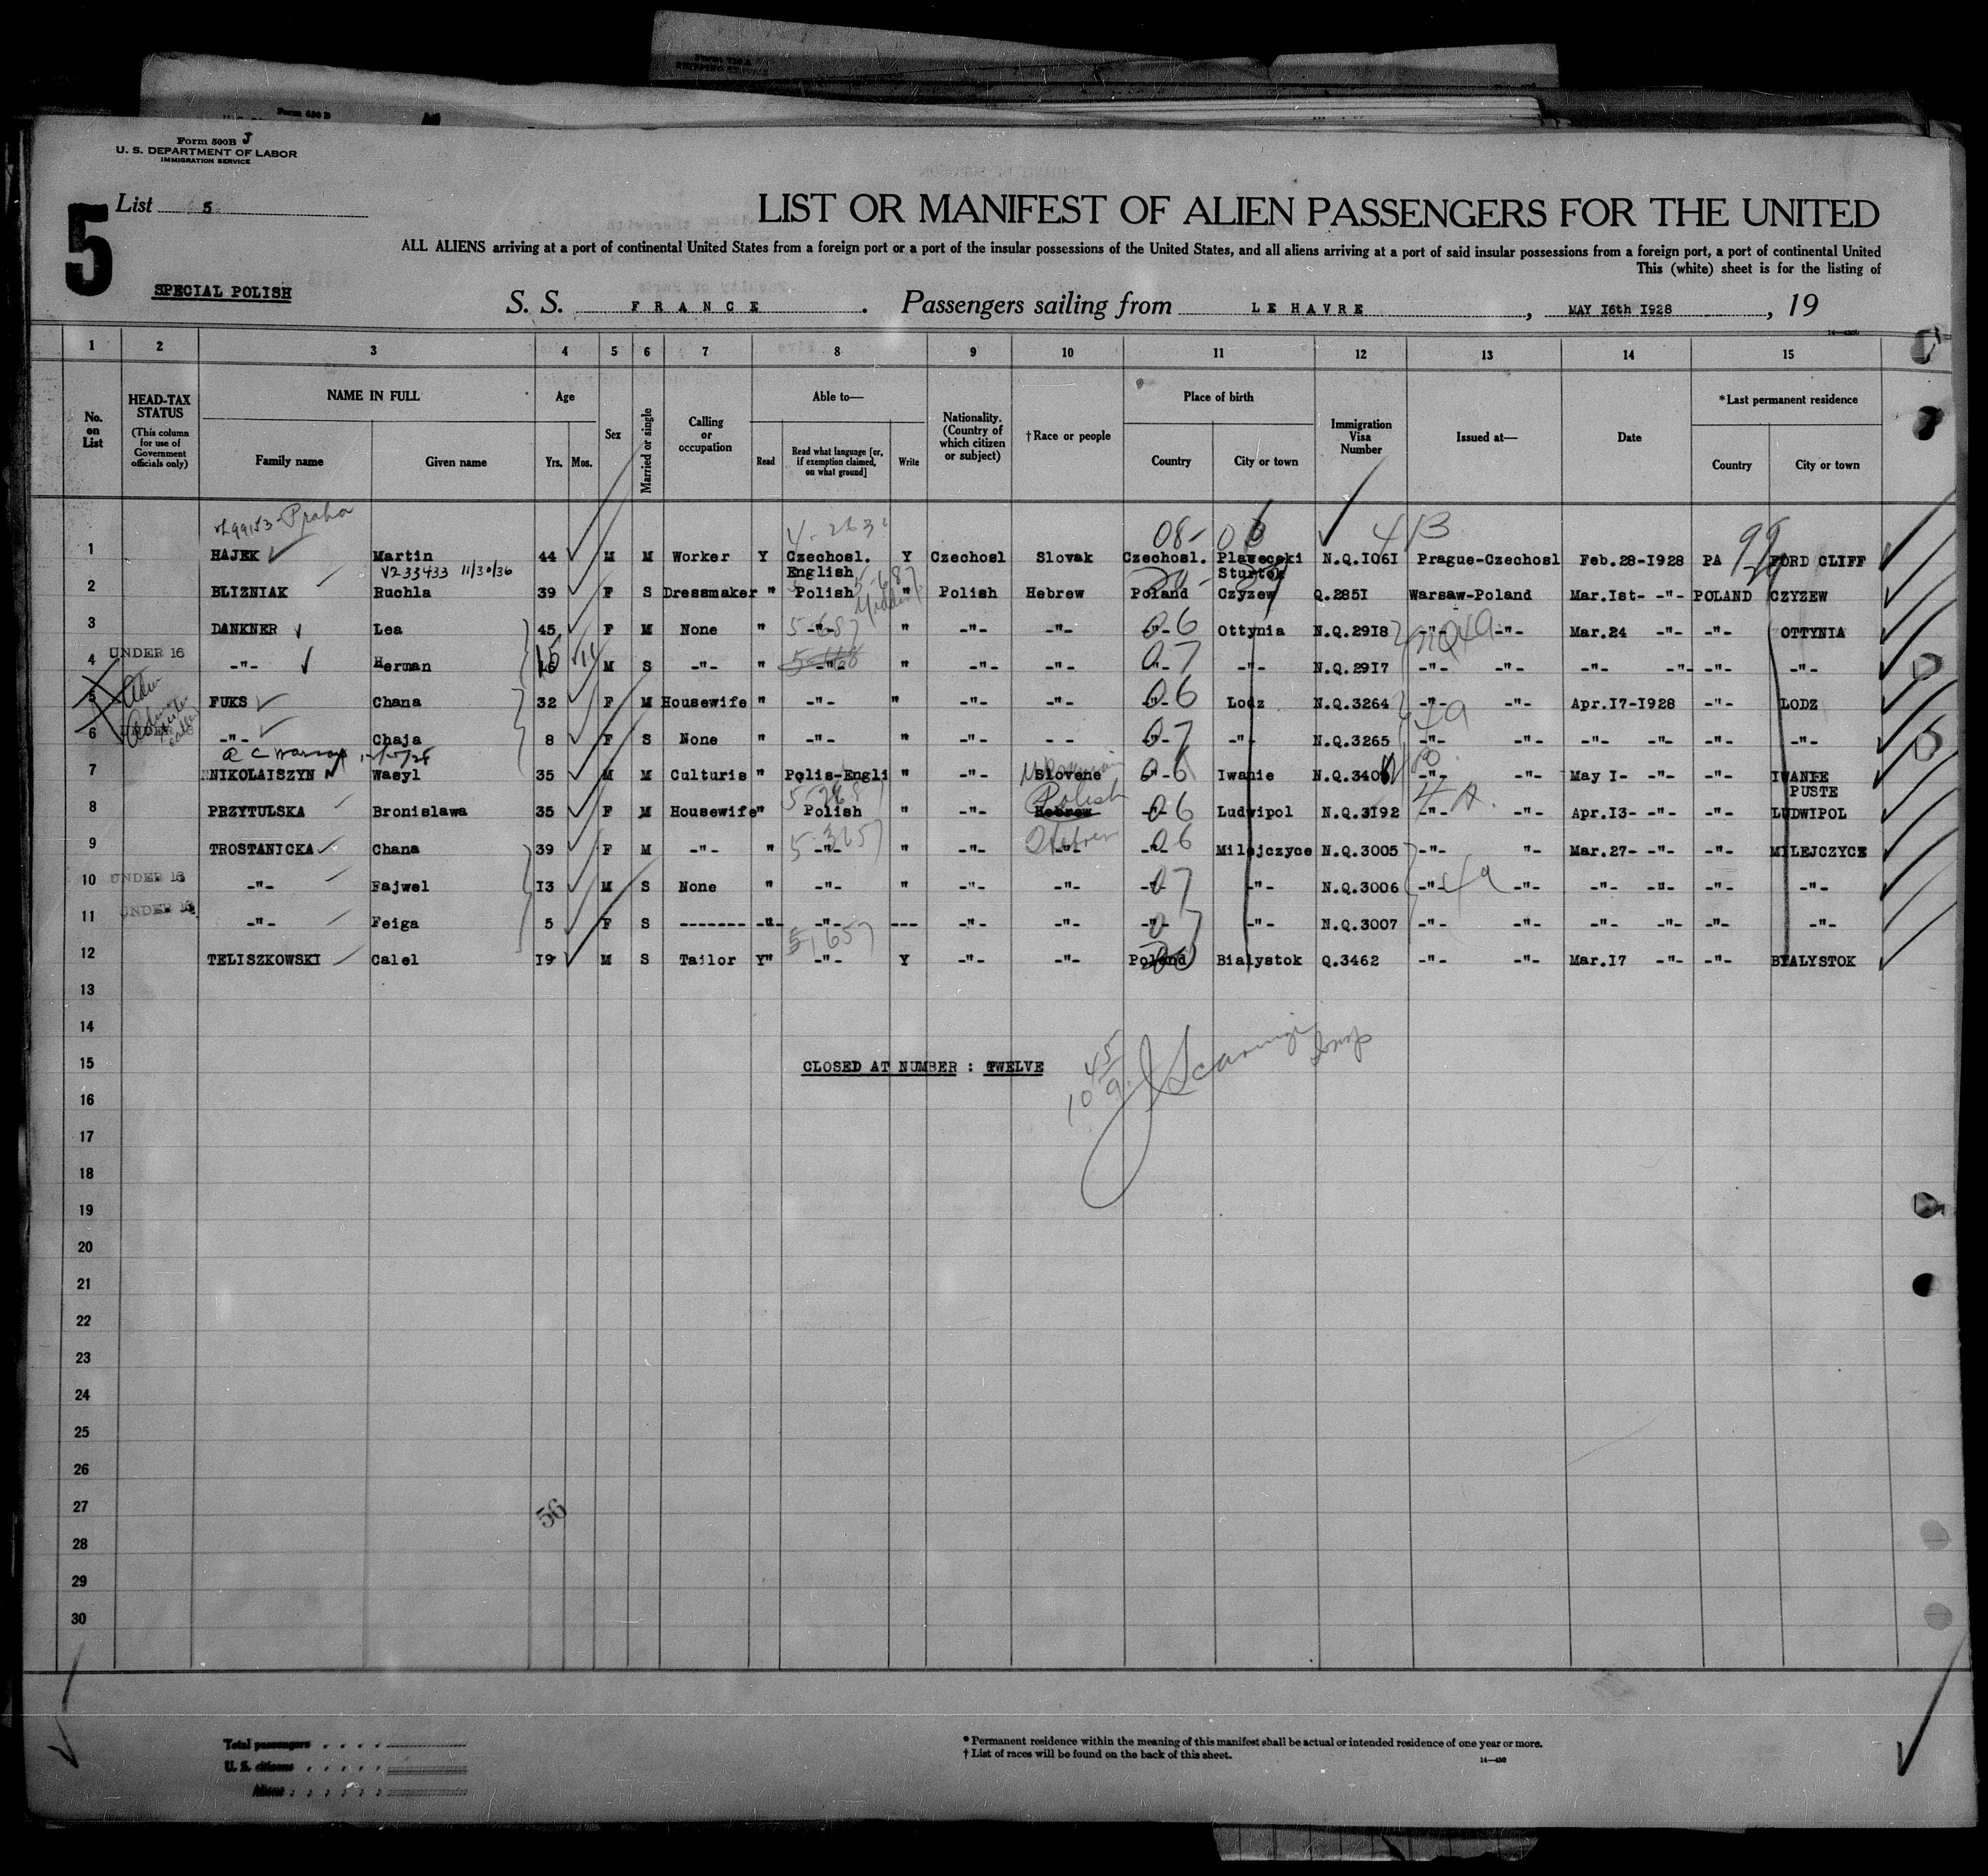 Form 500B J
U. S. DEPARTMENT OF LABOR
IMMIGRATION SERVICE
5
List 5
LIST OR MANIFEST OF ALIEN PASSENGERS FOR THE UNITED
ALL ALIENS arriving at a port of continental United States from a foreign port or a port of the insular possessions of the United States, and all aliens arriving at a port of said insular possessions from a foreign port, a port of continental United
This (white) sheet is for the listing of
SPECIAL POLISH
S. S. FRANCE. Passengers sailing from LE HAVRE, MAY 16th 1928, 19
1 2 3 4 5 6 7 8 9 10 11 12 13 14 15
No. on List
HEAD-TAX STATUS (This column for use of Government officials only)
NAME IN FULL
Family name Given name
Age
Yrs. Mos.
Sex
Married or single
Calling or occupation
Able to—
Read Read what language [or, if exemption claimed, on what ground] Write
Nationality. (Country of which citizen or subject)
†Race or people
Place of birth
Country City or town
Immigration Visa Number
Issued at—
Date
*Last permanent residence
Country City or town
Praha
08-06 4B 99
1 HAJEK Martin 44 M M Worker Y Czechosl. English Y Czechosl Slovak Czechosl. Plawecski Sturtok N.Q.I06I Prague-Czechosl Feb.28-I928 PA FORD CLIFF
V233433 11/30/36
2 BLIZNIAK Ruchla 39 F S Dressmaker " Polish " Polish Hebrew Poland Czyzew Q.285I Warsaw-Poland Mar.Ist- -"- POLAND CZYZEW
3 DANKNER Lea 45 F M None " -"- " -"- -"- -"- 06 Ottynia N.Q.29I8 -"- -"- Mar.24 -"- -"- OTTYNIA
UNDER 16
4 -"- Herman 16 M S -"- " -"- " -"- -"- -"- 07 -"- N.Q.29I7 -"- -"- -"- -"- -"- -"-
5 FUKS Chana 32 F M Housewife " -"- " -"- -"- -"- 06 Lodz N.Q.3264 -"- -"- Apr.I7-I928 -"- LODZ
6 -"- Chaja 8 F S None " -"- " -"- - - -"- 07 -"- N.Q.3265 -"- -"- -"- -"- -"- -"-
7 NIKOLAISZYN Wasyl 35 M M Culturis " Polis-Engli " -"- Slovene -"- 06 Iwanie N.Q.340 -"- -"- May I- -"- -"- IWANIE PUSTE
Polish
8 PRZYTULSKA Bronislawa 35 F M Housewife " Polish " -"- Hebrew -"- 06 Ludwipol N.Q.3I92 -"- -"- Apr.I3- -"- -"- LUDWIPOL
Hebrew
9 TROSTANICKA Chana 39 F M -"- " -"- " -"- -"- -"- 06 Milejczyce N.Q.3005 -"- "- Mar.27- -"- -"- MILEJCZYCE
UNDER 16
10 -"- Fajwel I3 M S None " -"- " -"- -"- -"- 07 -"- N.Q.3006 -"- -"- -"- -"- -"- -"-
UNDER 16
11 -"- Feiga 5 F S ------- -"- -"- --- -"- -"- -"- 07 -"- N.Q.3007 -"- -"- -"- -"- -"- -"-
12 TELISZKOWSKI Calel I9 M S Tailor Y" -"- Y -"- -"- Poland Bialystok Q.3462 -"- -"- Mar.I7 -"- -"- BIALYSTOK
13
14
15 CLOSED AT NUMBER : TWELVE
16
17
18
19
20
21
22
23
24
25
26
27
56
28
29
30
Total passengers
U. S. citizens
Aliens
* Permanent residence within the meaning of this manifest shall be actual or intended residence of one year or more.
† List of races will be found on the back of this sheet.